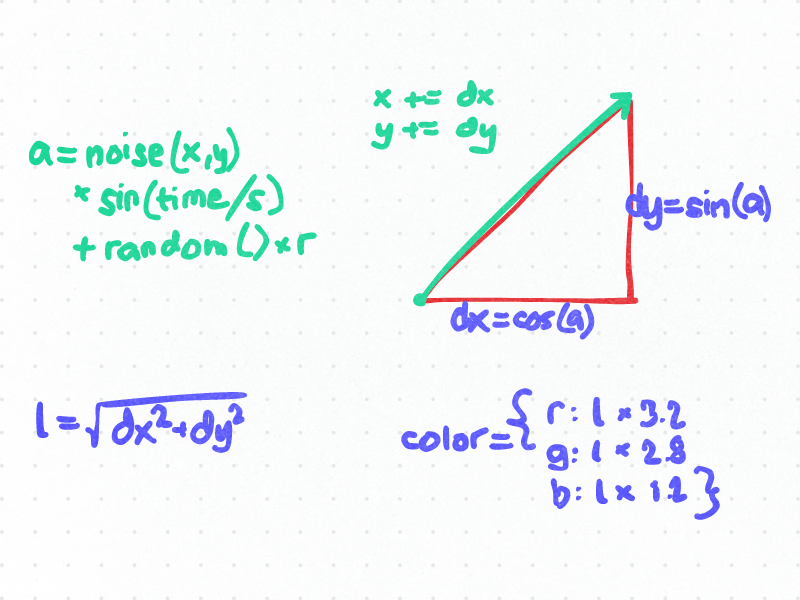 x += dx
y += dy
a = noise(x,y)
* sin(time/s)
+ random() * r
dy = sin(a)
dx = cos(a)
l = √dx²+dy²
color = { r: l * 3.2
g: l * 2.8
b: l * 1.2 }